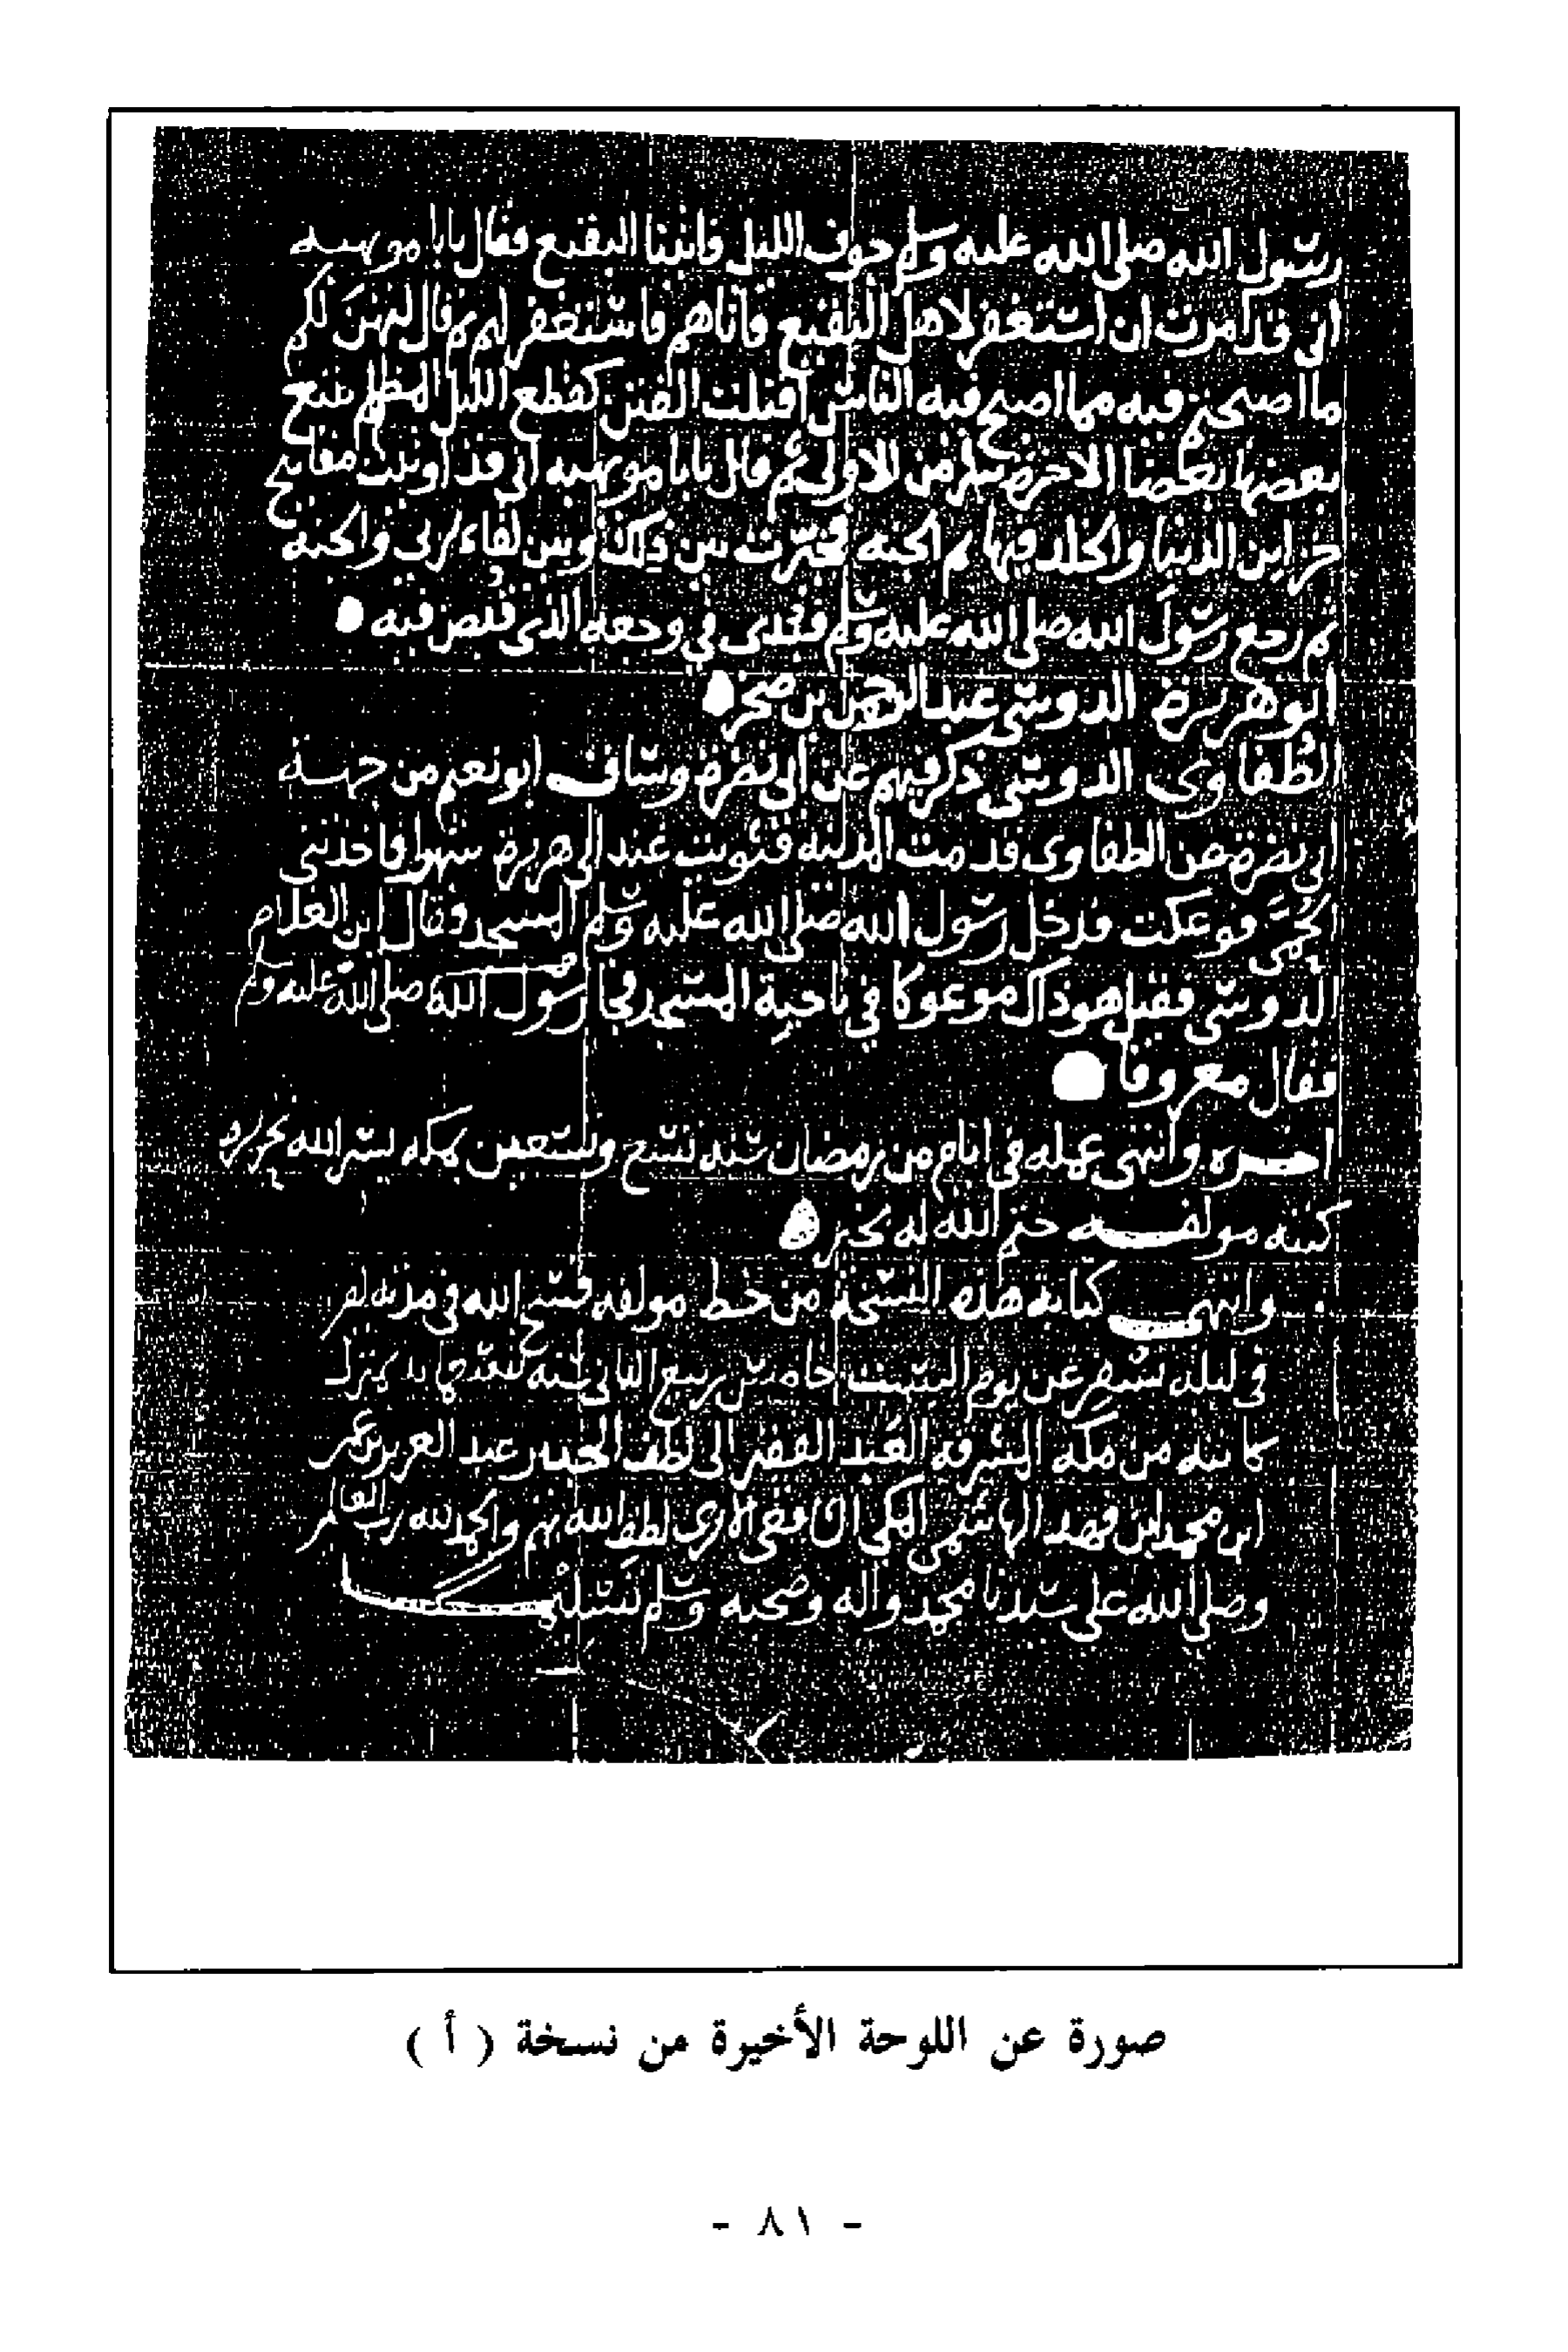 رسول الله صلى الله عليه وسلم جوف الليل فاتينا البقيع فقال يابا مويهبه
انى قد امرت ان استغفر لاهل البقيع فاتاهم فاستغفر لهم ثم قال ليهن لكم
ما اصبحتم فيه مما اصبح فيه الناس اقبلت الفتن كقطع الليل المظلم يتبع
بعضها بعضا الاخرة شر من الاولى ثم قال يابا مويهبه انى قد اوتيت مفاتيح
خزاين الدنيا والخلد فيها ثم الجنة فخيرت بين ذلك وبين لقاء ربى والجنة
ثم رجع رسول الله صلى الله عليه وسلم فبدى في وجعه الذى قبض فيه
ابو هريرة الدوسي عبد الرحمن بن صخر
الطفاوى الدوسي ذكر فيهم عن ابى نضرة وساق ابو نعيم من جهة
ابى نضرة عن الطفاوى قدمت المدينة فثويت عند ابى هريرة شهرا فاخذتنى
الحمى فوعكت فدخل رسول الله صلى الله عليه وسلم المسجد وقال اين الغلام
الدوسي فقيل هو ذاك موعوكا في ناحية المسجد فجا رسول الله صلى الله عليه وسلم
فقال معروفا
اخره وانتهى عمله في ايام من رمضان سنه تسع وتسعين بمكه يسر الله تحريره
كتبه مولفه ختم الله له بخير
وانتهى كتابة هذه النسخة من خط مولفه فسح الله في مدته
في ليله تسفر عن يوم السبت خامس ربيع الثانى سنه
كاتبه من مكه المشرفه العبد الفقير الى لطف الله عبد العزيز بن عمر
ابن محمد ابن فهد الهاشمي المكى الشافعي الاثرى لطف الله بهم والحمد لله رب العالمين
وصلى الله على سيدنا محمد واله وصحبه وسلم تسليما
صورة عن اللوحة الأخيرة من نسخة ( أ )
- ٨١ -